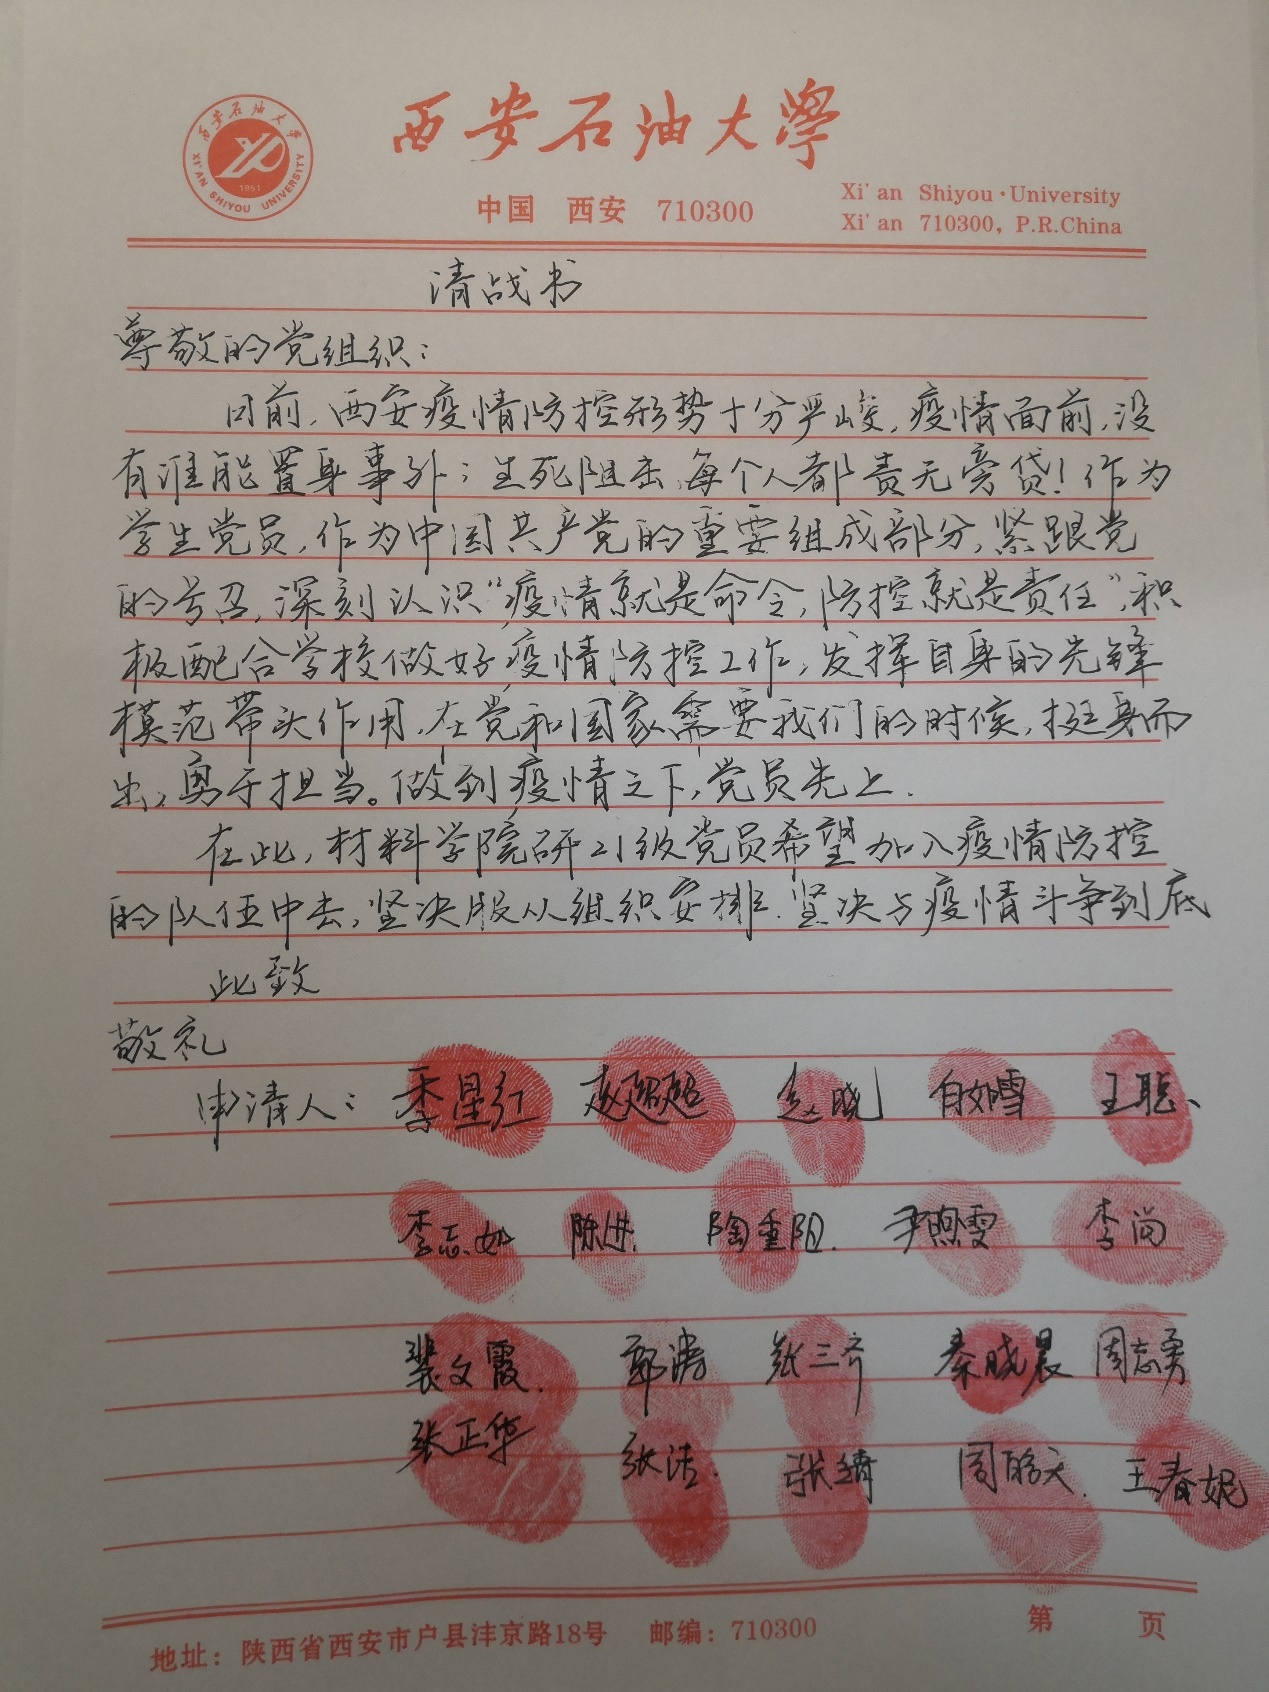 西安石油大學
西安石油大学
XI'AN SHIYOU UNIVERSITY
1951
中国 西安 710300
Xi'an Shiyou·University
Xi'an 710300, P.R.China
请战书
尊敬的党组织：
目前,西安疫情防控形势十分严峻,疫情面前,没
有谁能置身事外；生死阻击,每个人都责无旁贷！作为
学生党员,作为中国共产党的重要组成部分,紧跟党
的号召,深刻认识“疫情就是命令,防控就是责任”,积
极配合学校做好疫情防控工作,发挥自身的先锋
模范带头作用,在党和国家需要我们的时候,挺身而
出,勇于担当。做到疫情之下,党员先上.
在此,材料学院研21级党员希望加入疫情防控
的队伍中去,坚决服从组织安排.坚决与疫情斗争到底
此致
敬礼
申请人： 李星红 赵超超 赵晓 王聪、
李志如 陈进. 陶重阳. 尹煦雯 李尚
裴文霞. 郭涛 张三齐 秦晓晨 周志勇
张正华 张洁. 张靖 周皓天. 王春妮
第 页
地址：陕西省西安市户县沣京路18号 邮编：710300